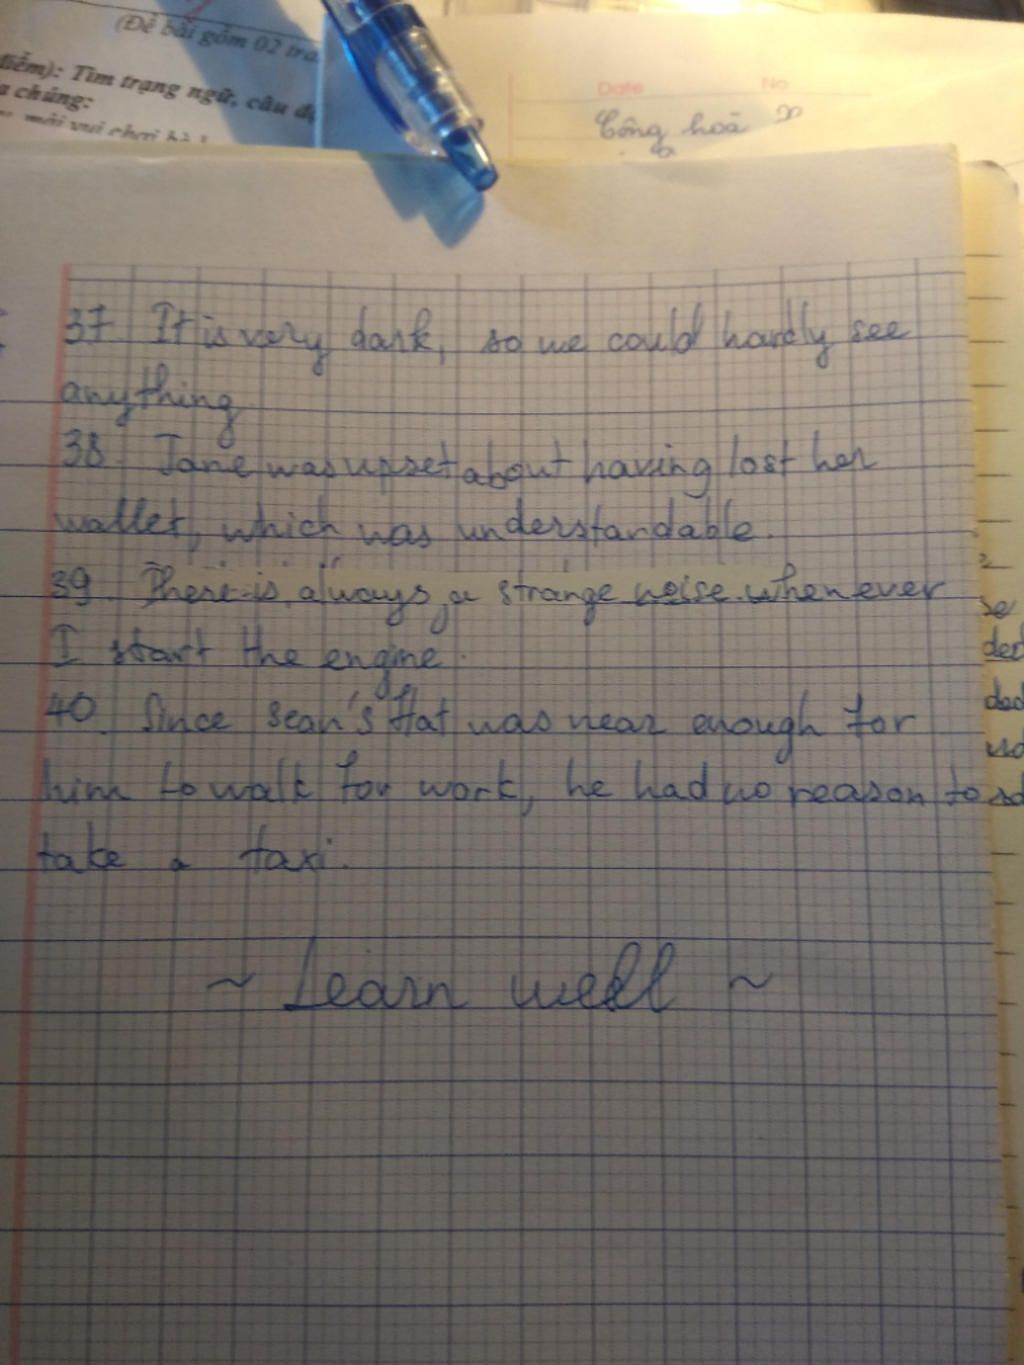 (Đề bài gồm 02 tra
điểm): Tìm trạng ngữ, câu đ
a chúng:
Date No
Cộng hoà
37. It is very dark, so we could hardly see
anything
38. Jane was upset about having lost her
wallet, which was understandable.
39. There is always a strange noise whenever
I start the engine.
40. Since Sean's flat was near enough for
him to walk for work, he had no reason to
take a taxi.
~ Learn well ~